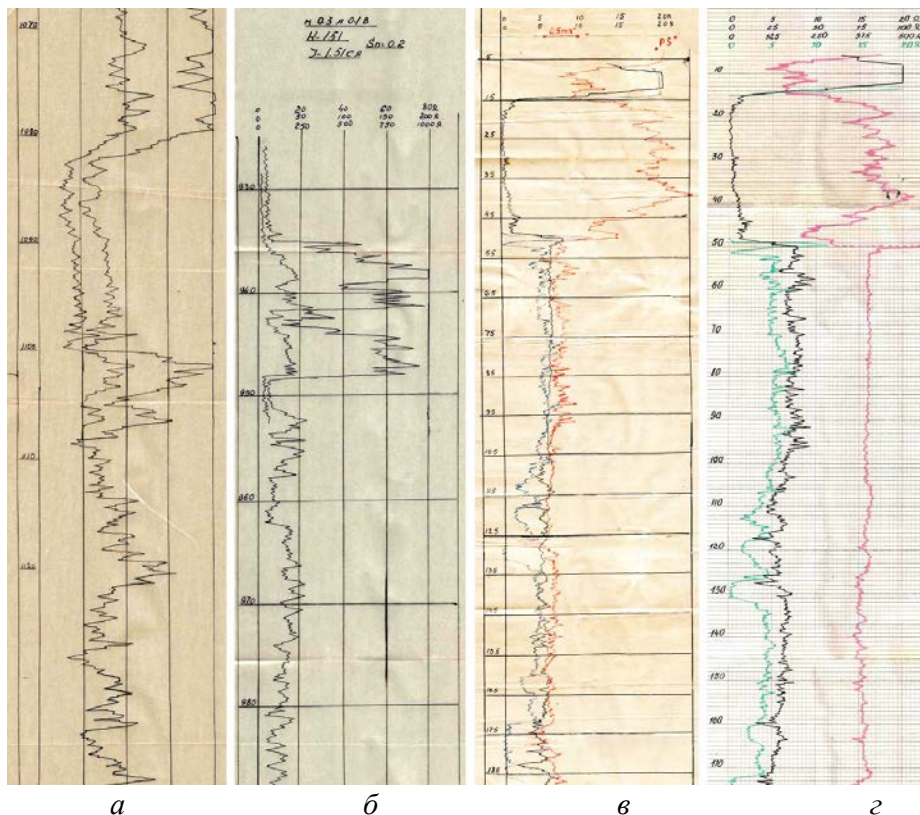 1070
1090
110
H=151
0 20 40 60 80Ω
0 50 100 150 200Ω
0 250 500 750 1000Ω
930
970
980
0 5 10 15 20Ω
0 5 10 15 20Ω
"PS"
5
15
25
35
45
55
65
75
85
95
105
115
125
135
145
155
165
175
0 5 10 15 20Ω
0 25 50 75 100Ω
0 125 250 375 500Ω
0 5 10 15
10
20
30
40
50
60
70
80
90
100
110
120
130
140
150
160
170
а б в г